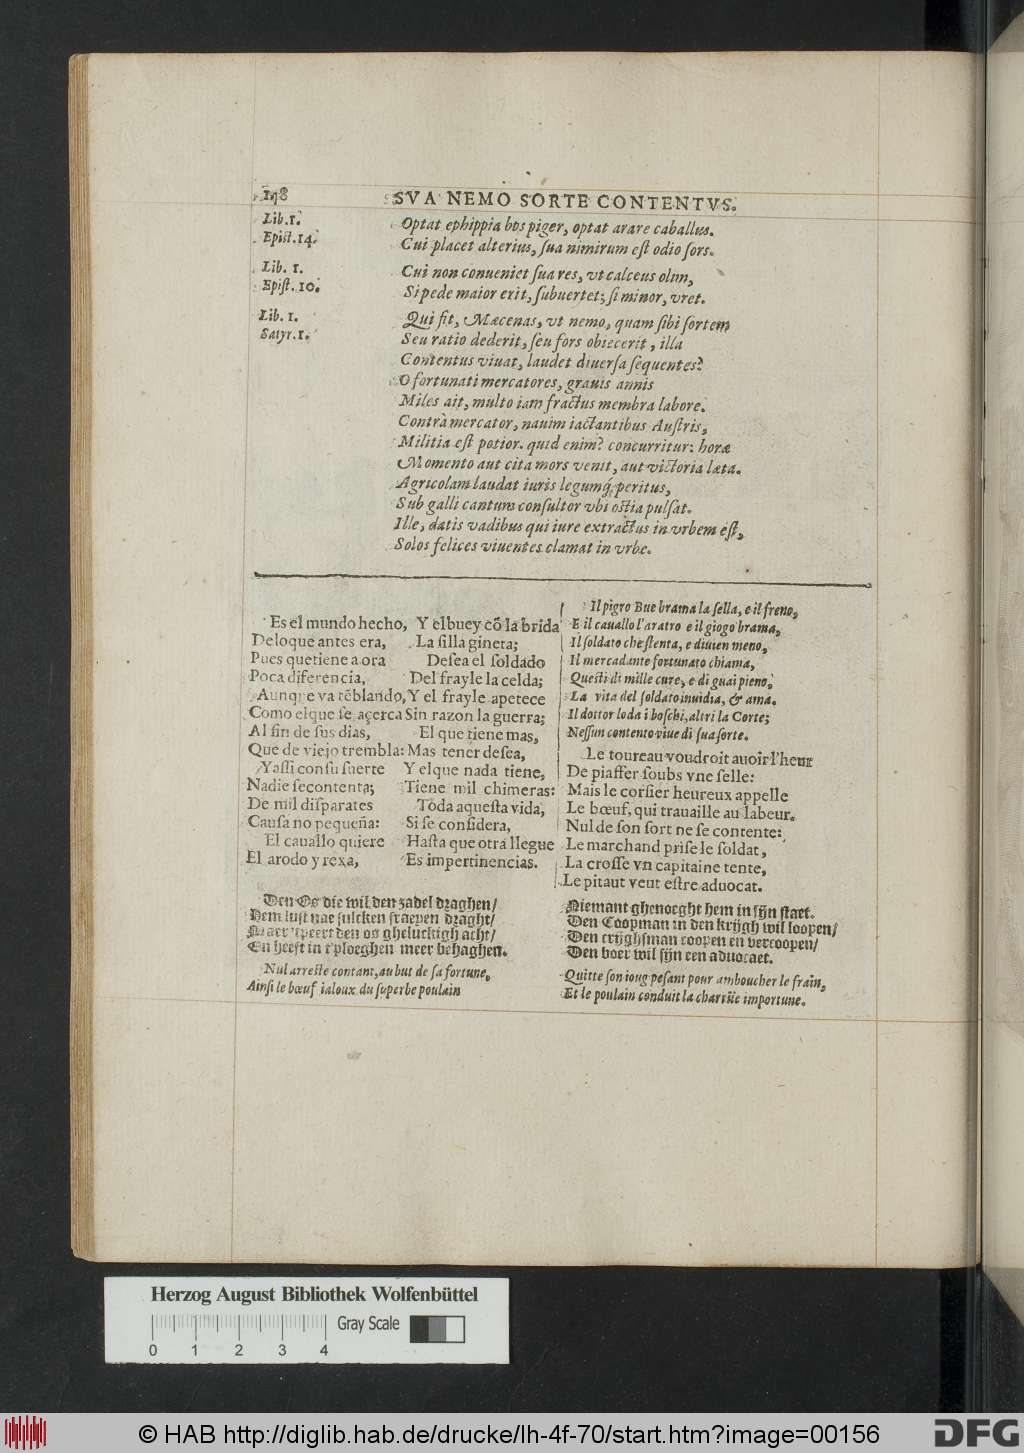 148
SVA NEMO SORTE CONTENTVS.
Lib. 1.
Epist. 14.
Optat ephippia bos piger, optat arare caballus.
Cui placet alterius, ſua nimirum eſt odio ſors.
Lib. 1.
Epiſt. 10.
Cui non conueniet ſua res, vt calceus olim,
Si pede maior erit, ſubuertet; ſi minor, vret.
Lib. 1.
Satyr. 1.
Qui fit, Mæcenas, vt nemo, quam ſibi ſortem
Seu ratio dederit, ſeu fors obiecerit, illa
Contentus viuat, laudet diuerſa ſequentes?
O fortunati mercatores, grauis annis
Miles ait, multo iam fractus membra labore.
Contrà mercator, nauim iactantibus Auſtris,
Militia eſt potior. quid enim? concurritur: horæ
Momento aut cita mors venit, aut victoria læta.
Agricolam laudat iuris legumq́; peritus,
Sub galli cantum conſultor vbi oſtia pulſat.
Ille, datis vadibus qui iure extractus in vrbem eſt,
Solos felices viuentes clamat in vrbe.
Es el mundo hecho,
De lo que antes era,
Pues que tiene a ora
Poca diferencia,
Aunq̃ e va tẽblando,
Como el que ſe açerca
Al fin de ſus dias,
Que de viejo trembla:
Y aſſi con ſu ſuerte
Nadie ſe contenta;
De mil diſparates
Cauſa no pequeña:
El cauallo quiere
El arado y rexa,
Y el buey cõ la brida
La ſilla gineta;
Deſea el ſoldado
Del frayle la celda;
Y el frayle apetece
Sin razon la guerra;
El que tiene mas,
Mas tener deſea,
Y el que nada tiene,
Tiene mil chimeras:
Toda aqueſta vida,
Si ſe conſidera,
Haſta que otra llegue
Es impertinencias.
Il pigro Bue brama la ſella, e il freno,
E il cauallo l'aratro e il giogo brama,
Il ſoldato che ſtenta, e diuien meno,
Il mercadante fortunato chiama,
Queſti di mille cure, e di guai pieno,
La vita del ſoldato inuidia, & ama.
Il dottor loda i boſchi, altri la Corte;
Neſſun contento viue di ſua ſorte.
Le toureau voudroit auoir l'heur
De piaffer ſoubs vne ſelle:
Mais le corſier heureux appelle
Le bœuf, qui trauaille au labeur.
Nul de ſon ſort ne ſe contente:
Le marchand priſe le ſoldat,
La croſſe vn capitaine tente,
Le pitaut veut eſtre aduocat.
Den Os die wil den zadel draghen/
Hem luſt nae ſulcken ſraepen draght/
Maer 'tpeert den os gheluckigh acht/
En heeft in t'ploeghen meer behaghen.
Niemant ghenoeght hem in ſijn ſtaet.
Den Coopman in den krijgh wil loopen/
Den crijghſman coopen en vercoopen/
Den boer wil ſijn een aduocaet.
Nul arreſte contant, au but de ſa fortune,
Ainſi le bœuf ialoux du ſuperbe poulain
Quitte ſon ioug peſant pour amboucher le frain,
Et le poulain conduit la charrüe importune.
Herzog August Bibliothek Wolfenbüttel
Gray Scale
0 1 2 3 4
© HAB http://diglib.hab.de/drucke/lh-4f-70/start.htm?image=00156
DFG